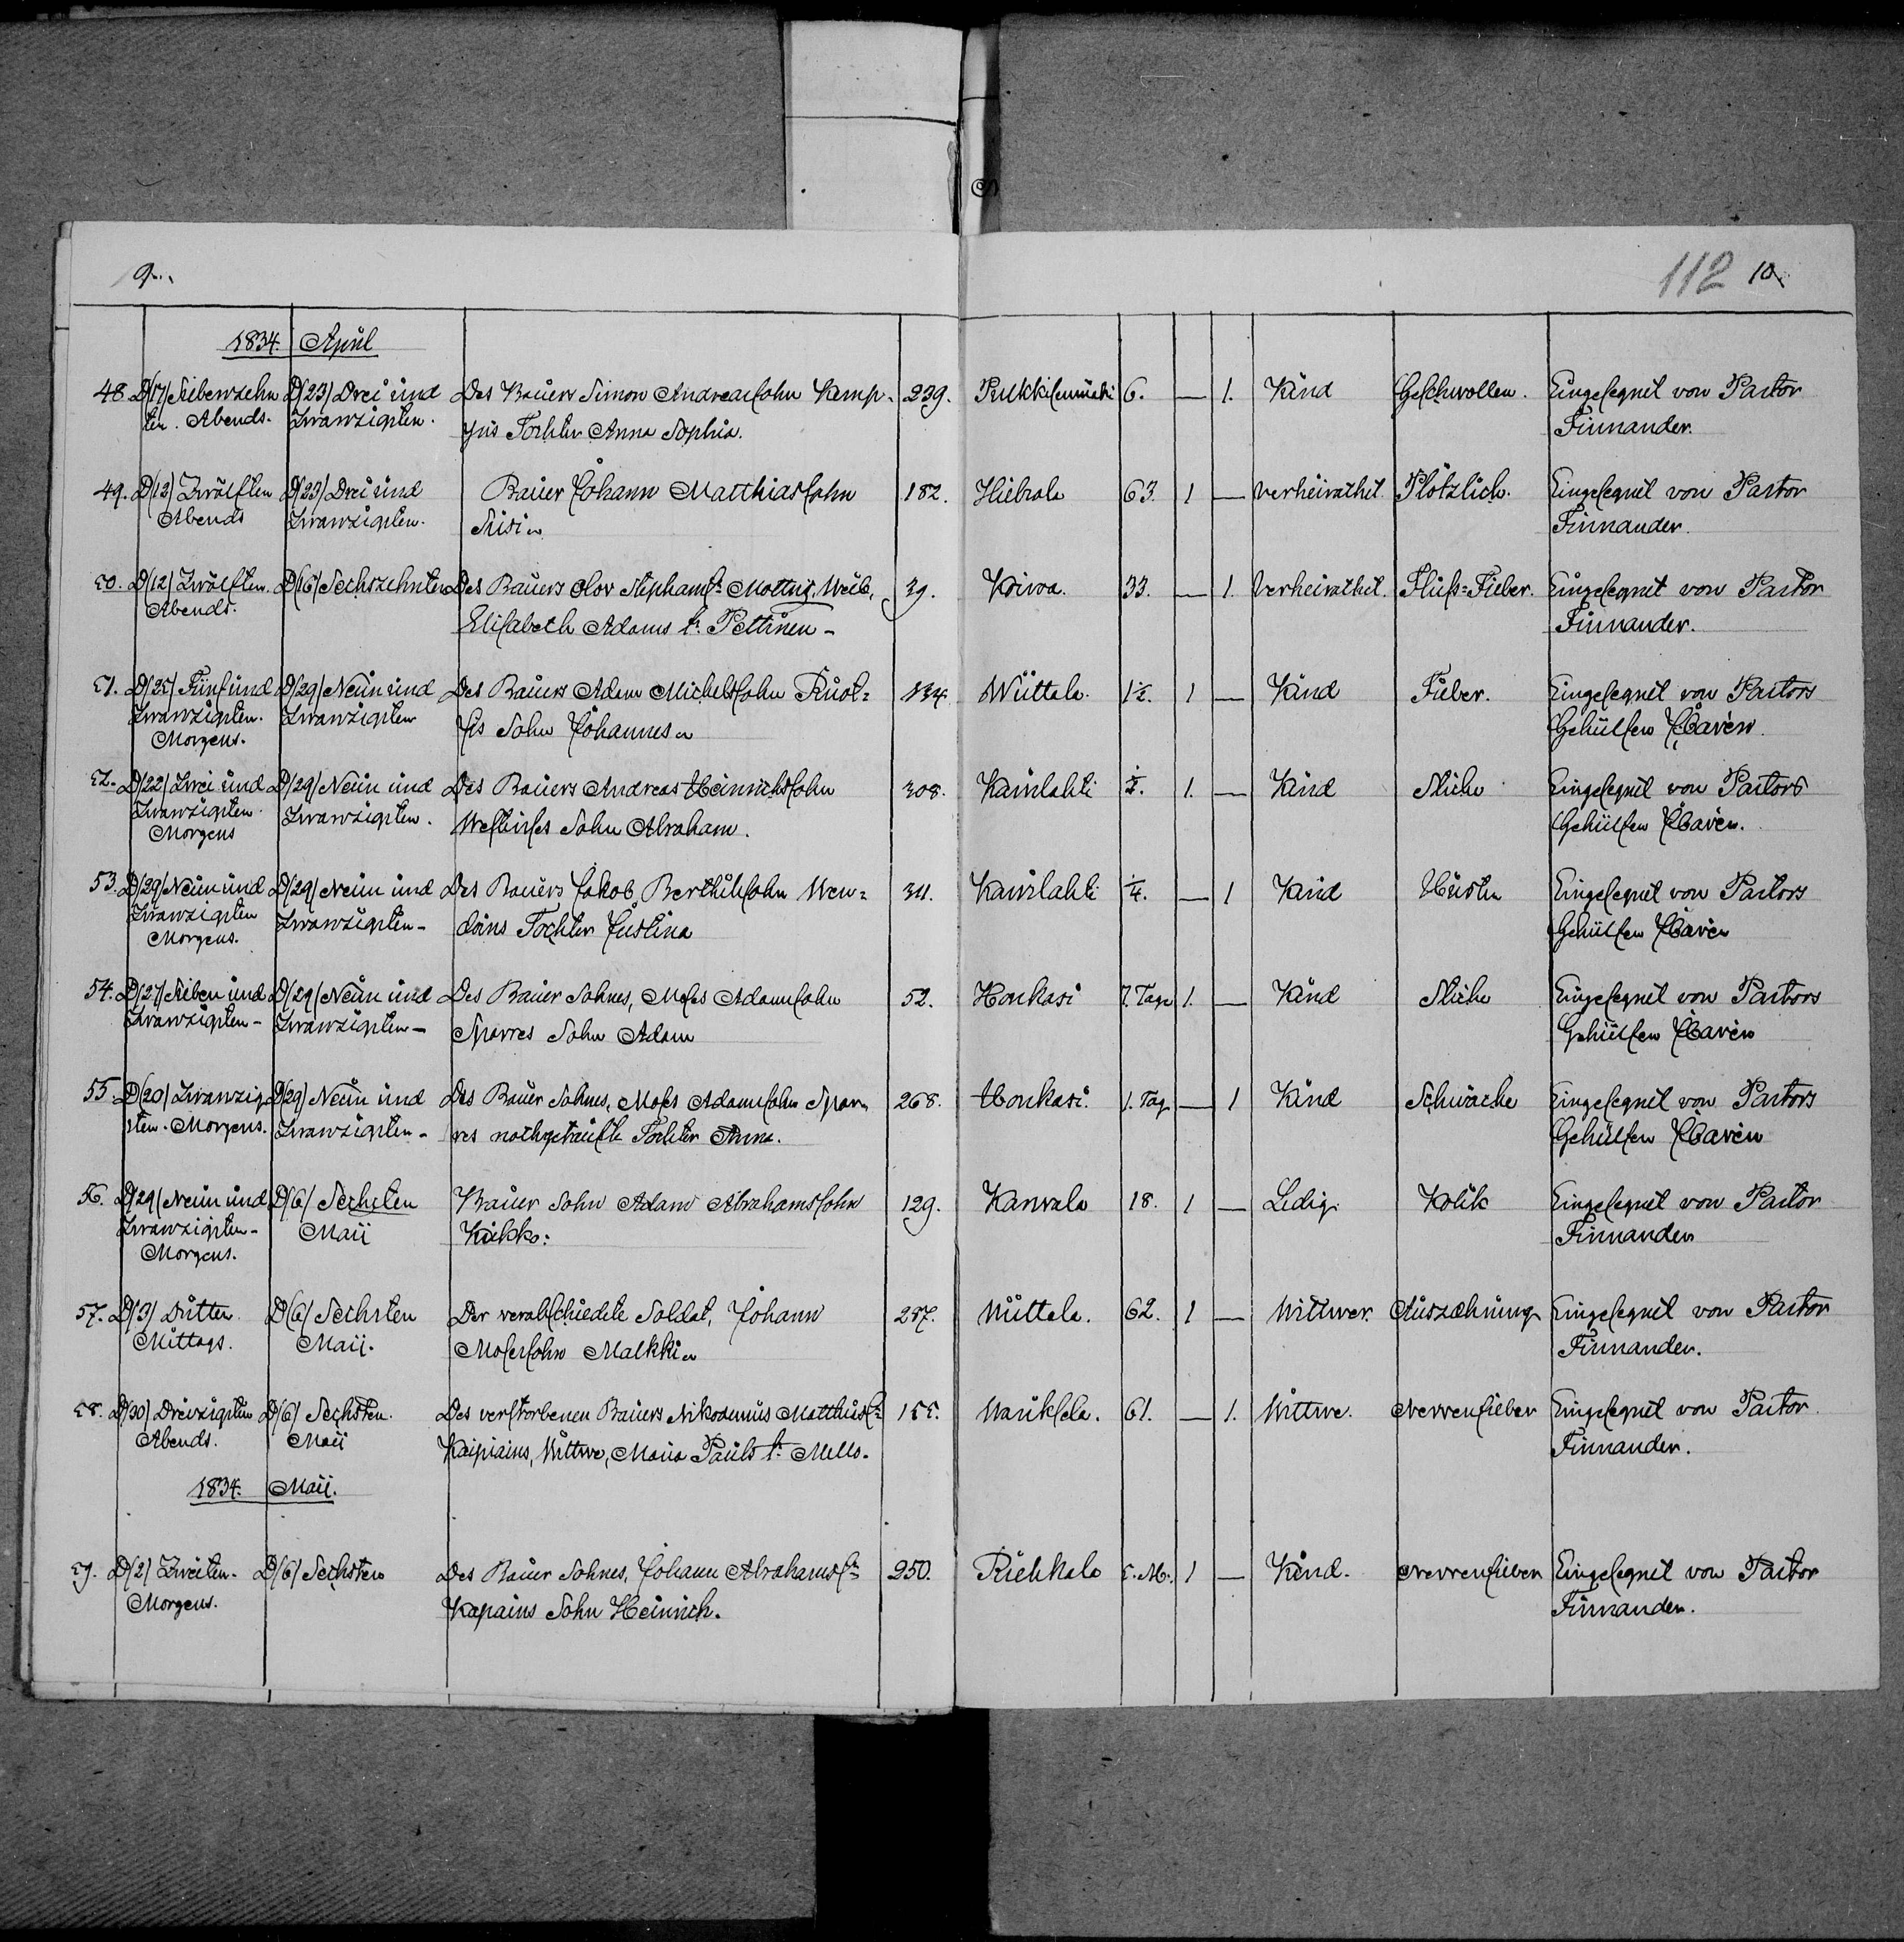 9.
112 10
1834. April
48. D/17/ Siebenzehn D/23/ Drei und Des Bauers Simon Andreassohn Kemp- 239. Pukkisenmäki 6. — 1. Kind Geschwollen. Eingesegnet von Pastor
ten. Abends. Zwanzigsten. Tochter Anna Sophia. Finnander.
49. D/12/ Zwölften D/23/ Drei und Bauer Johann Matthiassohn 182. 63. 1 — verheirathet. Plötzlich. Eingesegnet von Pastor
Abends Zwanzigsten. Finnander.
50. D/12/ Zwölften. D/16/ Sechszehnten Des Bauers Olov Weib, 39. Koiwa. 33. — 1. Verheirathet. Fluß=Fieber. Eingesegnet von Pastor
Abends. Elisabeth Adams t: Pettinen - Finnander.
51. D/25/ Fünfund D/29/ Neun und Des Bauers Adam Michelssohn Ruot= 134. Wüttala. 1½. 1 — Kind Fieber. Eingesegnet von Pastors
Zwanzigsten. Zwanzigsten Sohn Johannes Gehülfen
Morgens.
52. D/22/ Zwei und D/29/ Neun und Des Bauers Andreas Heinrichssohn 308. Kainlahti ½. 1. — Kind Stiche Eingesegnet von Pastors
Zwanzigsten Zwanzigsten. Sohn Abraham. Gehülfen
Morgens
53. D/29/ Neun und D/29/ Neun und Des Bauers Jakob Berthilssohn Wen= 311. Kainlahti ¼. — 1 Kind Husten Eingesegnet von Pastors
Zwanzigsten Zwanzigsten - Tochter Justina Gehülfen
Morgens.
54. D/27/ Sieben und D/29/ Neun und Des Bauer Sohnes, Moses Adamssohn 52. Honkasi 7. Tage 1. — Kind Stiche Eingesegnet von Pastors
Zwanzigsten - Zwanzigsten - Sparres Sohn Adam Gehülfen
55. D/20/ Zwanzig D/29/ Neun und Des Bauer Sohnes, Moses Adamssohn Spar 268. Honkasi. 1. Tag — 1 Kind Schwäche Eingesegnet von Pastors
sten. Morgens. Zwanzigsten - res nothgetaufte Tochter Anna. Gehülfen
56. D/29/ Neun und D/6/ Sechsten Bauer Sohn Adam Abrahamssohn 129. Kanvala 18. 1 — Ledig. Kolik Eingesegnet von Pastor
Zwanzigsten - Maii Kukko: Finnander
Morgens.
57. D/3/ Dritten. D/6/ Sechsten Der verabschiedete Soldat, Johann 297. Wüttala. 62. 1 — Wittwer. Auszehrung Eingesegnet von Pastor
Mittags. Maii. Mosessohn Malkki Finnander.
58. D/30/ Dreizigsten D/6/ Sechsten. Des verstorbenen Bauers Nikodemus Matthias s: 155. 61. — 1. Wittwe. Nervenfieber Eingesegnet von Pastor
Abends. Maii Kaipiains, Wittwe, Maria Pauls t: Mello. Finnander.
1834. Maii.
59. D/2/ Zweiten. D/6/ Sechsten Des Bauer Sohnes, Johann Abrahams s: 250. Riehkala 5. M. 1 — Kind. Nervenfieber Eingesegnet von Pastor
Morgens. Kapains Sohn Heinrich. Finnander.